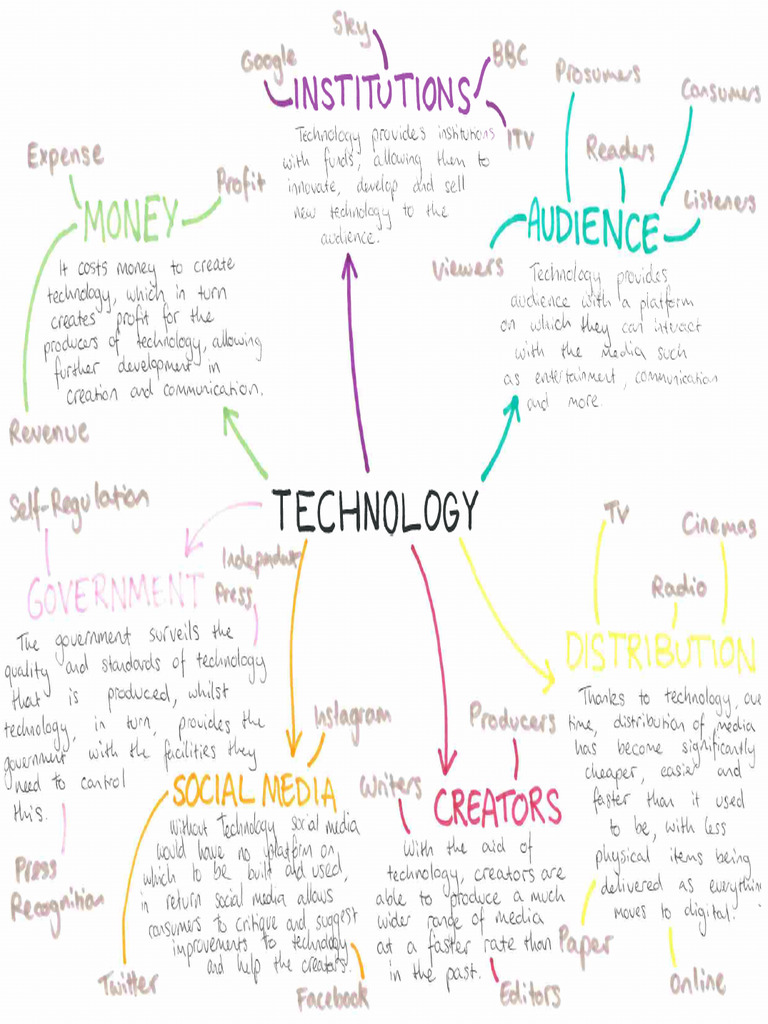 Sky
Google
BBC
INSTITUTIONS
ITV
Technology provides institutions
with funds, allowing them to
innovate, develop and sell
new technology to the
audience.
Prosumers
Consumers
Readers
Listeners
AUDIENCE
Viewers
Technology provides
audience with a platform
on which they can interact
with the media such
as entertainment, communication
and more.
Expense
Profit
MONEY
It costs money to create
technology, which in turn
creates profit for the
producers of technology, allowing
further development in
creation and communication.
Revenue
TECHNOLOGY
Self-Regulation
Independent
Press
GOVERNMENT
The government surveils the
quality and standards of technology
that is produced, whilst
technology, in turn, provides the
government with the facilities they
need to control
this.
Press
Recognition
Instagram
SOCIAL MEDIA
Without Technology social media
would have no platform on
which to be built and used,
in return social media allows
consumers to critique and suggest
improvements to technology
and help the creators.
Twitter
Facebook
Producers
Writers
CREATORS
With the aid of
technology, creators are
able to produce a much
wider range of media
at a faster rate than
in the past.
Editors
TV
Cinemas
Radio
DISTRIBUTION
Thanks to technology, over
time, distribution of media
has become significantly
cheaper, easier and
faster than it used
to be, with less
physical items being
delivered as everything
moves to digital.
Paper
Online